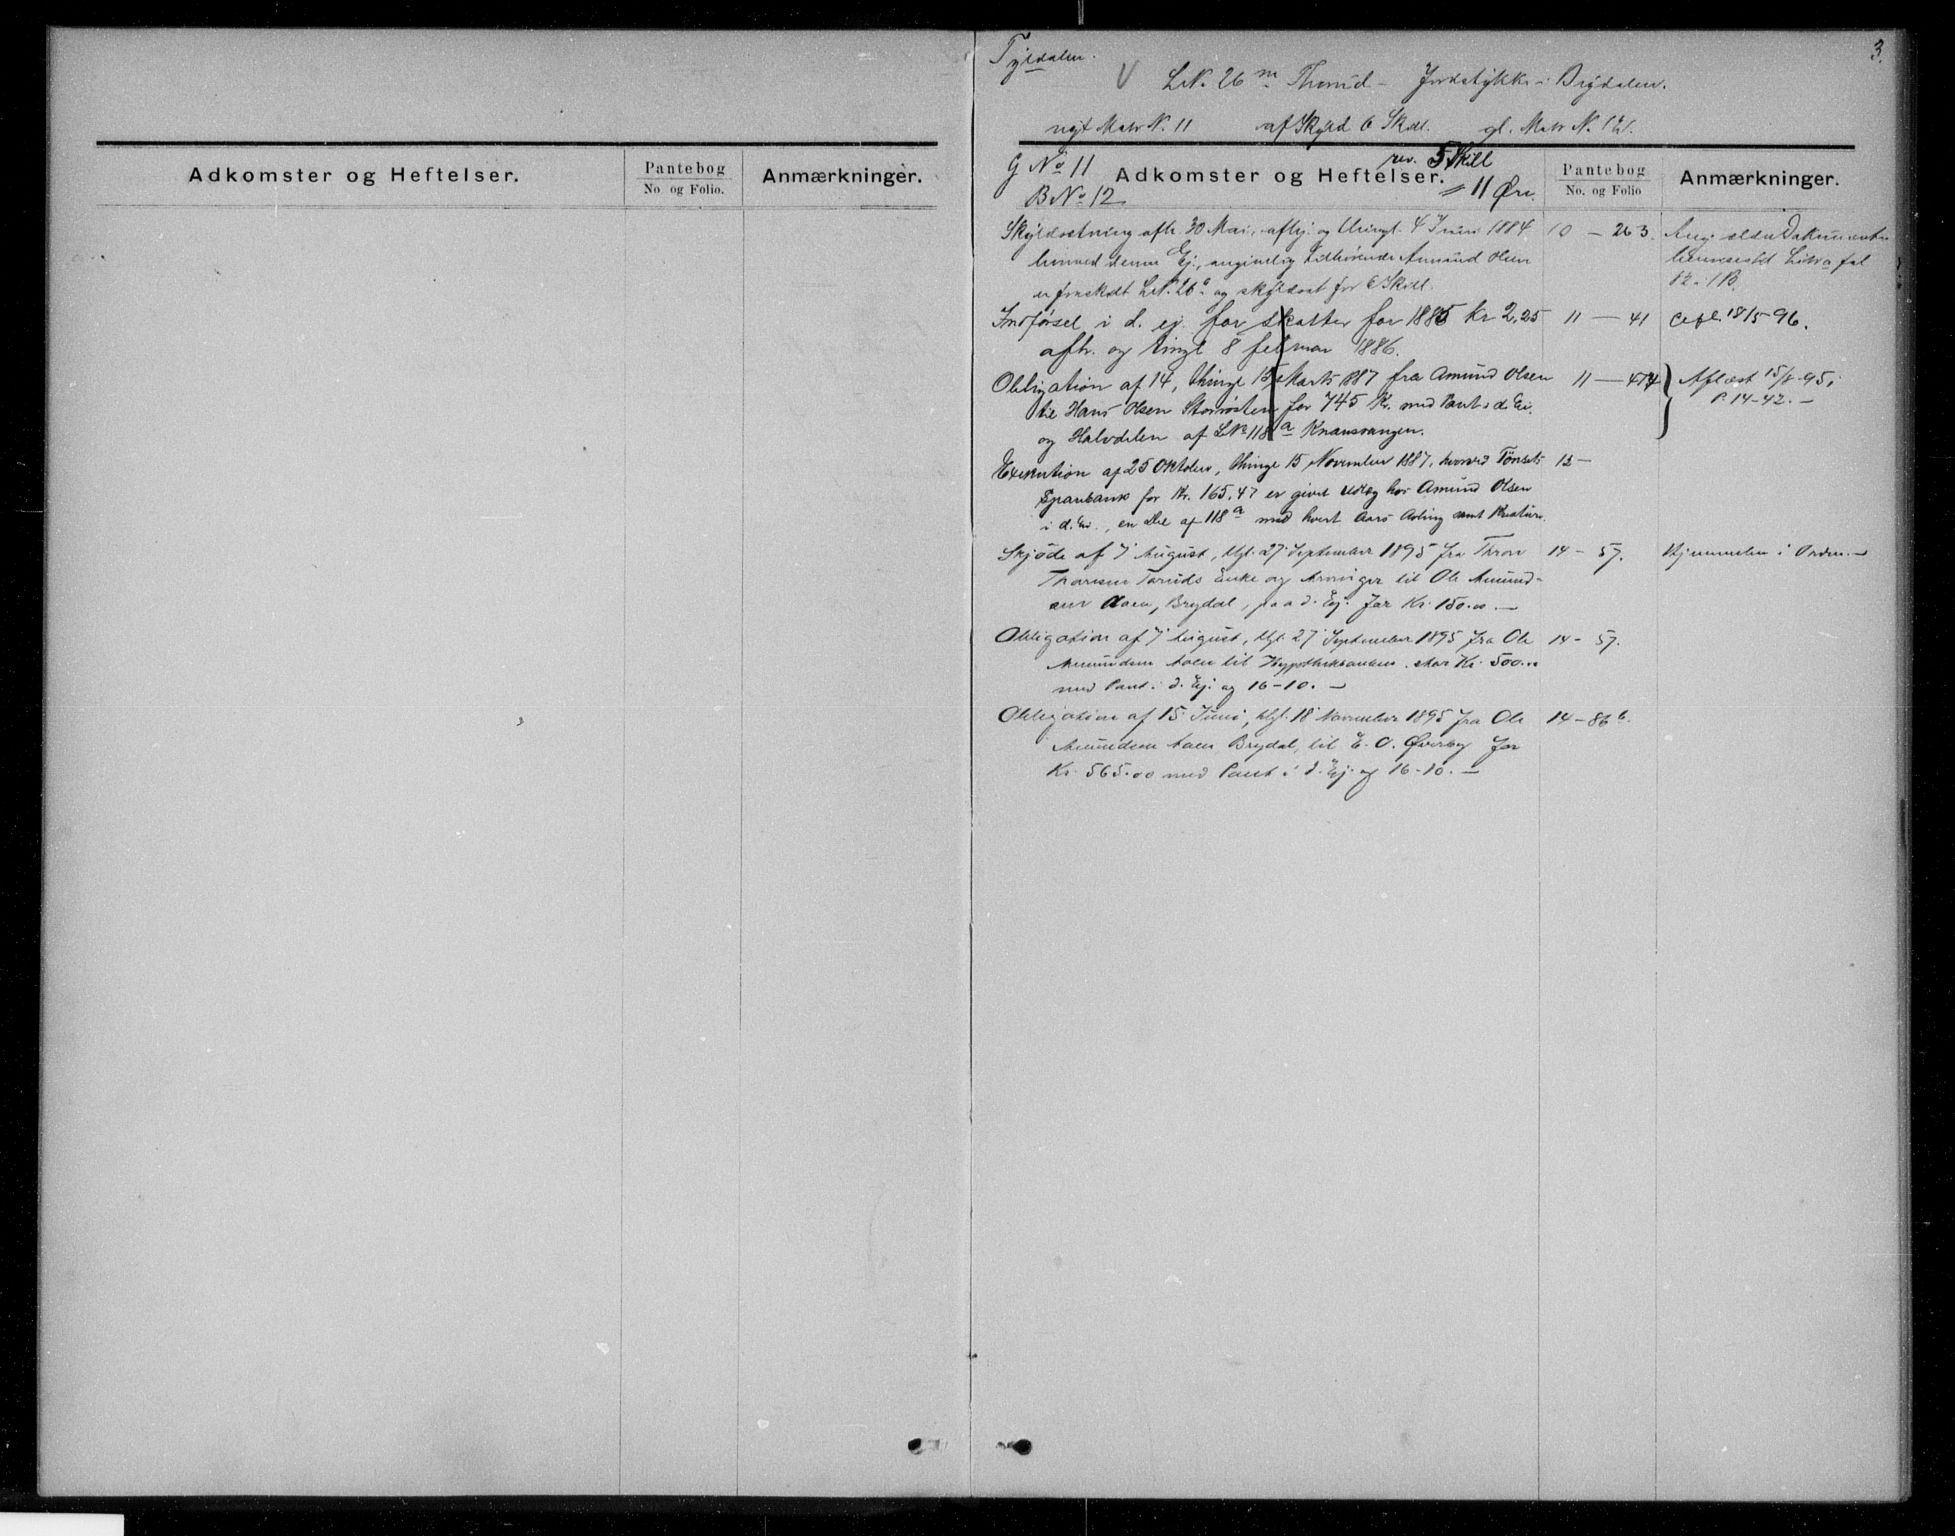 Adkomster og Heftelser.
Pantebog
No. og Folio.
Anmærkninger.
3.
Tyldalen.
V LN. 26 m Thorud - Jordstykke i Brydalen.
nyt Matr N. 11 af Skyld 6 Skill. gl. Matr N.
G No 11
B No 12
rev. 5 Skill
= 11 Øre.
Adkomster og Heftelser.
Pantebog
No. og Folio
Anmærkninger.
Skyldsetning afh. 30 Mai, afhj. og thingl. 4 Juni 1884 10 - 263. Ang. ældre Dokumenter
hvorved denne Ej., angivelig tilhørende Amund Olsen henvises til Litra a fol
er fraskilt LN. 26 a og skyldsat for 6 Skill. 12 i
Indførsel i d. ej. for skatter for 1885 kr 2,25 11 - 41 Afl. 18/5 96.
afh. og tingl 8 februar 1886.
Obligation af 14, thingl 15 Marts 1887 fra Amund Olsen 11 - 474 Aflæst 15/8-95 i
til Hans Olsen Storrøsten for 745 Kr. med Pant i d. Ei. P. 14-42. -
og Halvdelen af LNo 118 a Knausvangen.
Exekution af 25 Oktober, thingl 15 November 1887, hvorved Tønsets 12 -
Sparebank for Kr. 165,47 er givet Udlæg hos Amund Olsen
i d. Ei., en Del af 118 a med hvert Aars Avling samt Kreature.
Skjøde af 7 August, thgl. 27 September 1895 fra Thron 14 - 57. Hjemmelen i Orden. -
Thoresen Toruds Enke og Arvinger til Ole Amund-
sen Aaen, Brydal, paa d. Ej. for Kr. 150.00 -
Obligation af 7 August, thgl. 27 September 1895 fra Ole 14 - 57.
Amundsen Aaen til Hypothekbanken stor Kr. 500.00
med Pant i d. Ej. og 16-10. -
Obligation af 15 Juni, thgl. 18 November 1895 fra Ole 14 - 86 b.
Amundsen Aaen, Brydal, til E. O. Øverby for
Kr. 565.00 med Pant i d. Ej. og 16-10. -